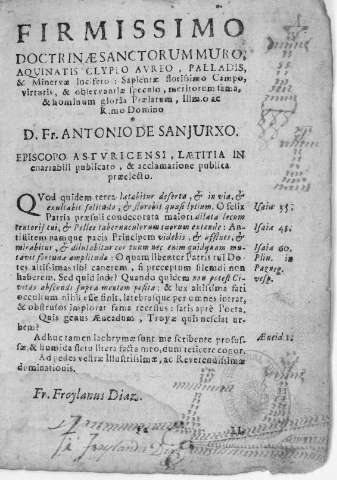 FIRMISSIMO
DOCTRINÆ SANCTORUM MURO,
AQUINATIS CLYPEO AVREO, PALLADIS,
& Minervæ lucifero: Sapientiæ florissimo Campo,
virtutis, & observantiæ speculo, meritorum fama,
& hominum gloria Prælatum, Illmo ac
R.mo Domino
D. Fr. ANTONIO DE SANJURXO.
EPISCOPO ASTVRICENSI, LÆTITIA IN
enarrabili publicato, & acclamatione publica
præelecto.
QVod quidem terra lætabitur deserta, & in via, &
exultabit solitudo, & florebit quasi lylium. O felix Isaiæ 35.
Patria præsuli condecorata maiori dilata locum
tentorij tui, & Pelles tabernaculorum tuorum extende: An- Isaiæ 48.
tistitem namque pacis Principem videbis, & afflues, &
mirabitur, & dilatabitur cor nec enim quidquam mu- Isaiæ 60.
tavit fortunæ amplitudo: O quam libenter Patris tui Do- Plin. in
tes altissimas tibi canerem, si præceptum silendi non Panegy.
haberem. Sed quid inde? Quando quidem non potest Ci- vesp.
vitas abscondi supra montem posita: & lux altissima fati
occultum nihil esse sinit, latebrasque per omnes intrat,
& obstrusos implorat fama recessus: satis aprè Poeta.
Quis genus Æneadum, Troyæ quis nesciat ur- Æneid. 1.
bem?
Adhuc tamen lachrymæ sunt me scribente profus-
sæ, & humida fleto litera facta meo, dum reticere cogor.
Ad pedes vestræ Illustrissimæ, ac Reverendissimæ
dominationis.
Fr. Froylanus Diaz.
Froylandus Diaz